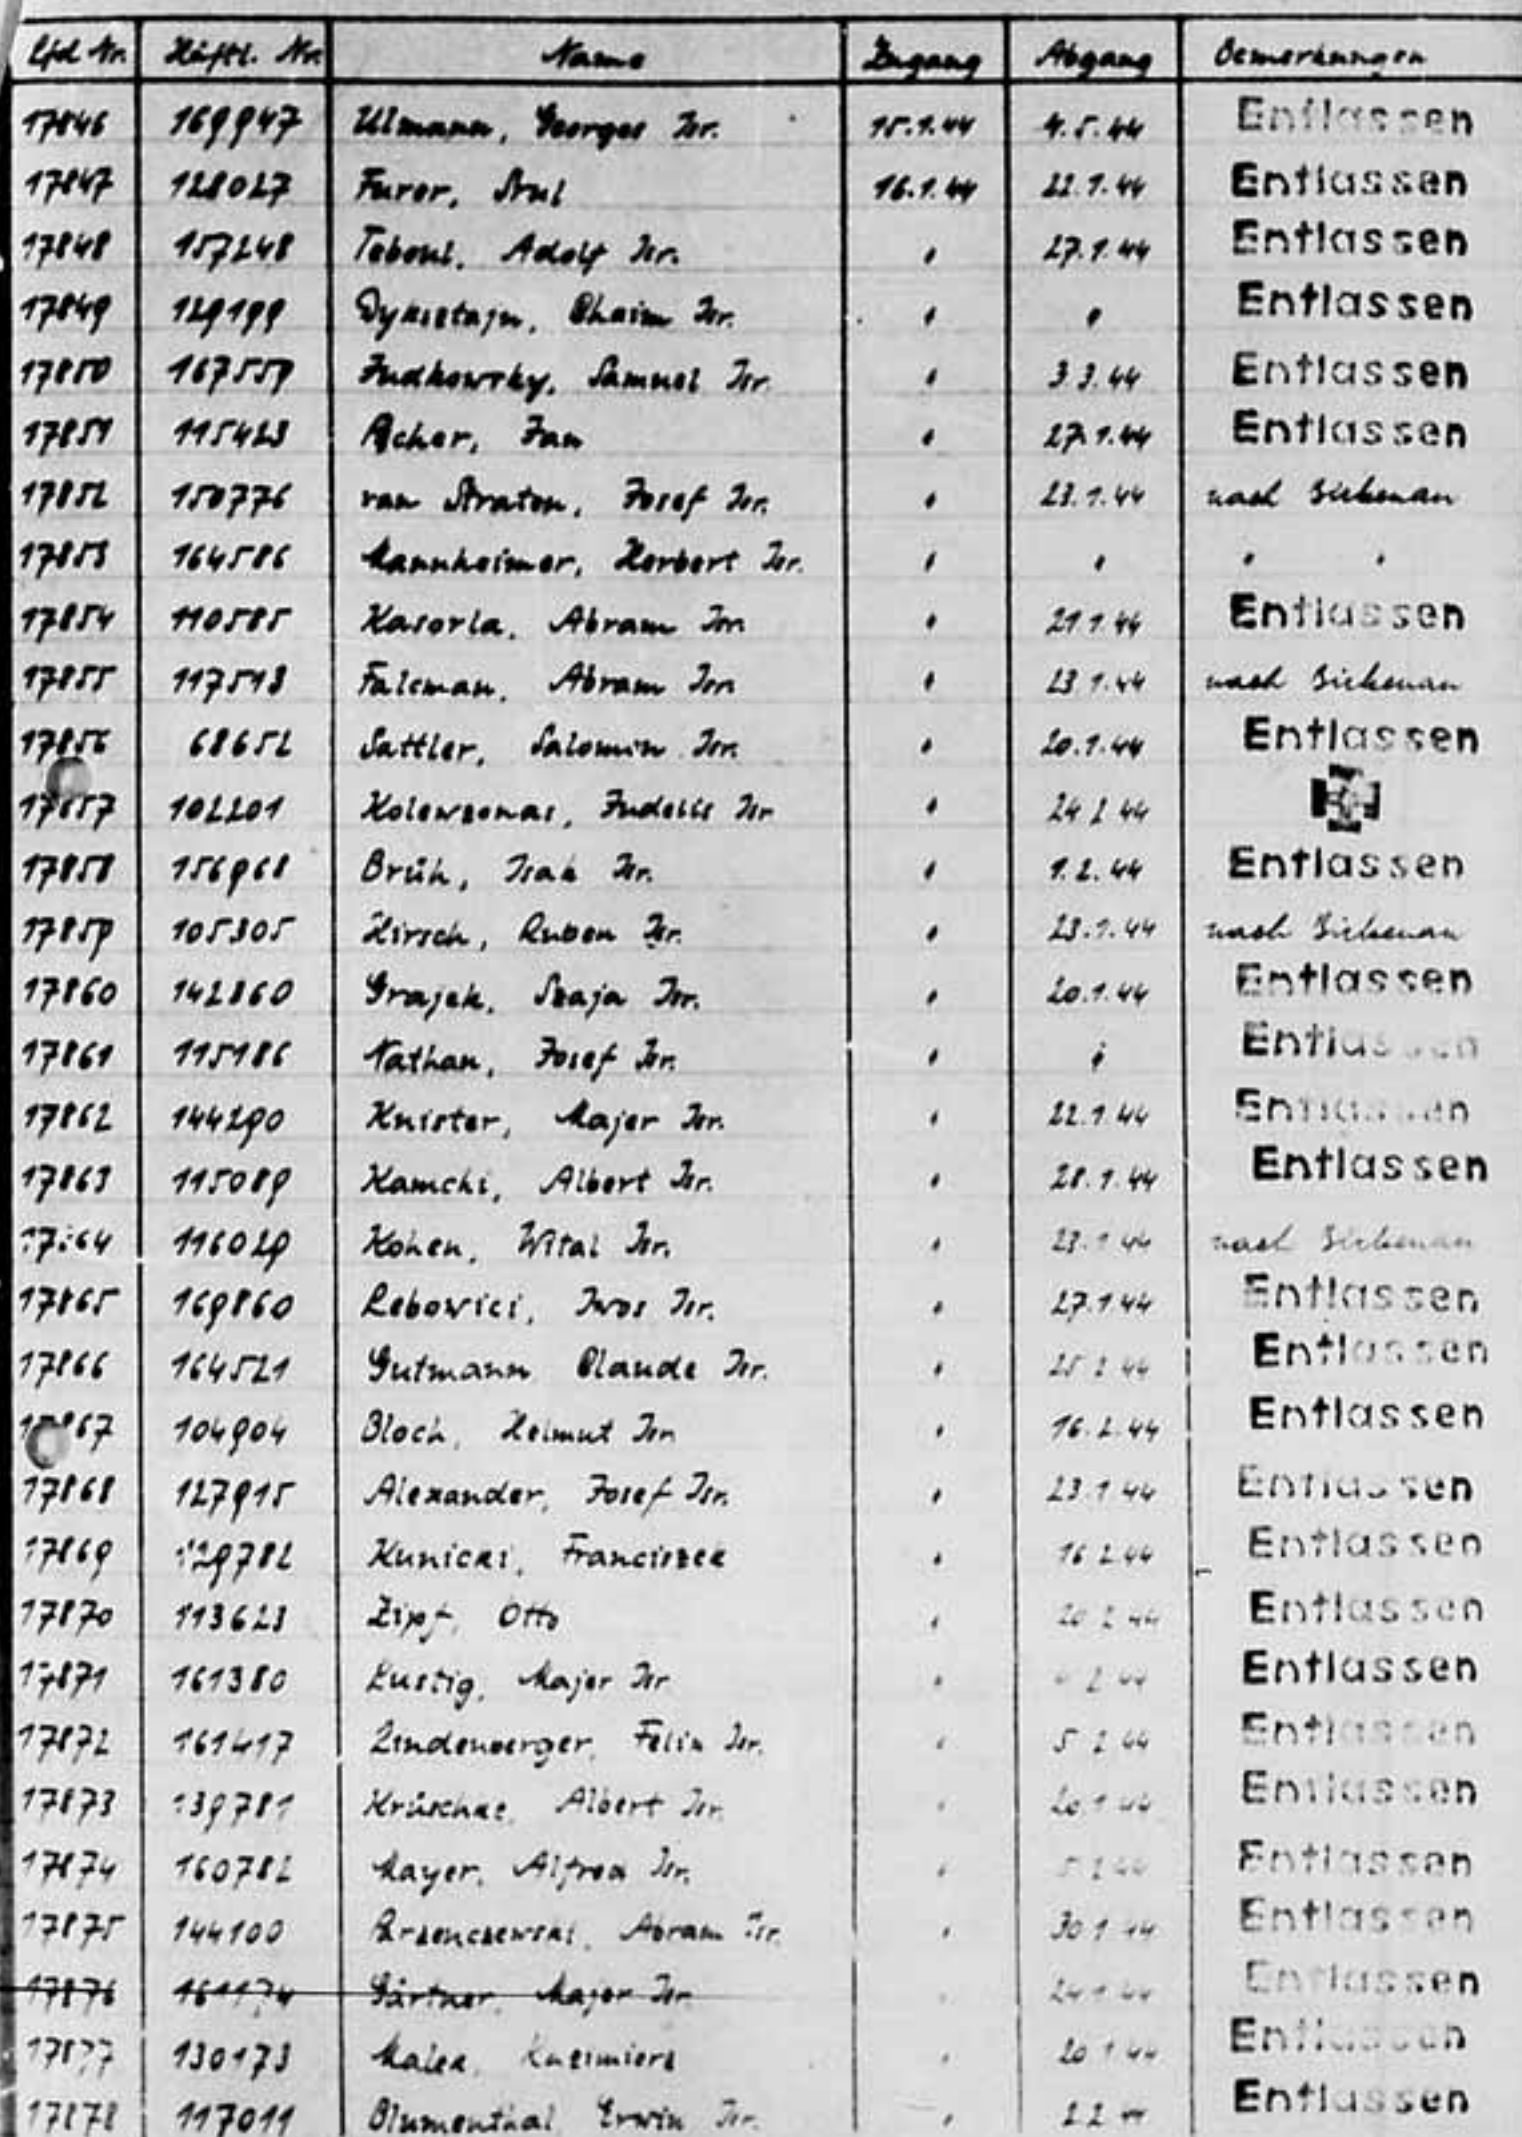 Lfd Nr. Häftl. Nr. Name Zugang Abgang Bemerkungen
17846 169947 Ulmann, Georges Isr. 15.1.44 4.5.44 Entlassen
17847 128027 Furer, Srul 16.1.44 22.1.44 Entlassen
17848 157248 Teboul, Adolf Isr. " 27.1.44 Entlassen
17849 129199 Dyksztajn, Chaim Isr. " " Entlassen
17850 167559 Judkowsky, Samuel Isr. " 3.3.44 Entlassen
17851 115423 Acher, Jan " 27.1.44 Entlassen
17852 150776 van Straten, Josef Isr. " 23.1.44 nach Birkenau
17853 164586 Mannheimer, Herbert Isr. " " " "
17854 110585 Kasorla, Abram Isr. " 21.1.44 Entlassen
17855 117513 Falcman, Abram Isr. " 23.1.44 nach Birkenau
17856 68652 Sattler, Salomin Isr. " 20.1.44 Entlassen
17857 102201 Isr. " 24.2.44
17858 156968 Brüh, Isak Isr. " 1.2.44 Entlassen
17859 105305 Hirsch, Ruben Isr. " 23.1.44 nach Birkenau
17860 142860 Grajek, Szaja Isr. " 20.1.44 Entlassen
17861 115186 Nathan, Josef Isr. " " Entlassen
17862 144290 Knister, Majer Isr. " 22.1.44 Entlassen
17863 115089 Kamchi, Albert Isr. " 28.1.44 Entlassen
17864 116029 Kohen, Wital Isr. " 23.1.44 nach Birkenau
17865 169860 Lebovici, Isr. " 27.1.44 Entlassen
17866 164521 Gutmann Claude Isr. " 25.2.44 Entlassen
17867 104904 Bloch, Helmut Isr. " 16.2.44 Entlassen
17868 127915 Alexander, Josef Isr. " 23.1.44 Entlassen
17869 Kunicki, Franciszek " 16.2.44 Entlassen
17870 113623 Zipf, Otto " 20.2.44 Entlassen
17871 161380 Lustig, Majer Isr. " Entlassen
17872 161417 Lindenberger, Felix Isr. " 5.2.44 Entlassen
17873 139781 Albert Isr. " 20.1.44 Entlassen
17874 160782 Mayer, Alfred Isr. " 5.2.44 Entlassen
17875 144100 Abram Isr. " 30.1.44 Entlassen
17876 161174 Gärtner, Majer Isr. " 24.1.44 Entlassen
17877 130173 Malek, Kazimierz " 20.1.44 Entlassen
17878 117011 Blumenthal Erwin Isr. " 2.2.44 Entlassen